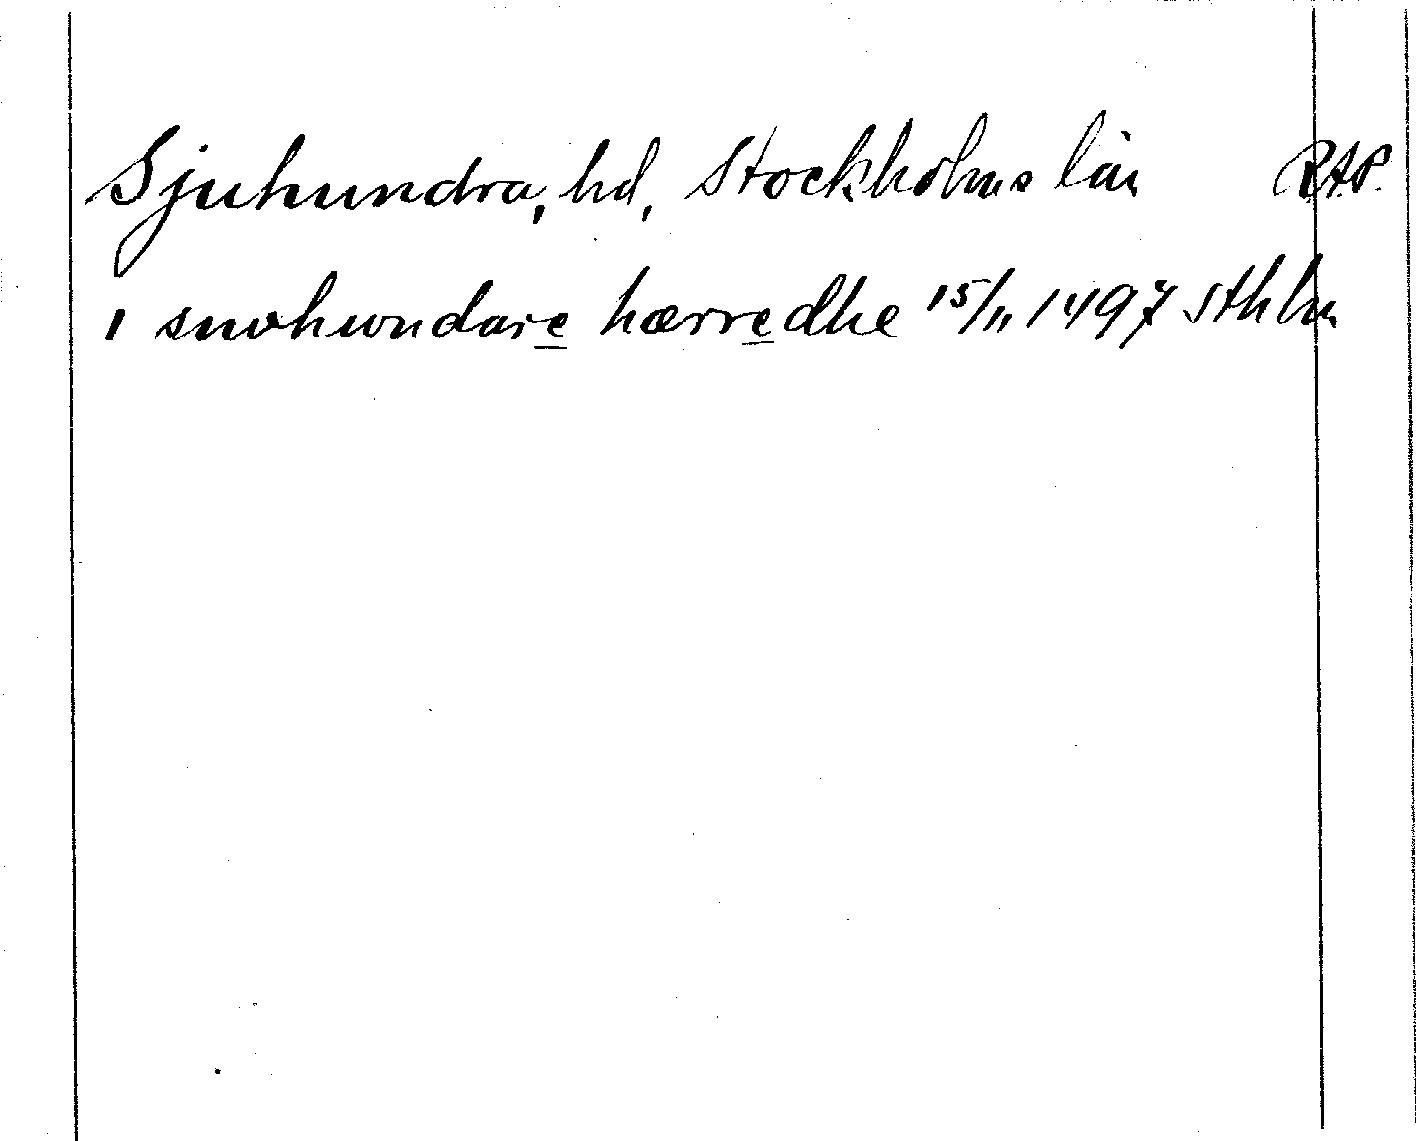 Sjuhundra, hd, Stockholms län RAP.
i snohwndare hærredhe 15/11 1497 Sthlm